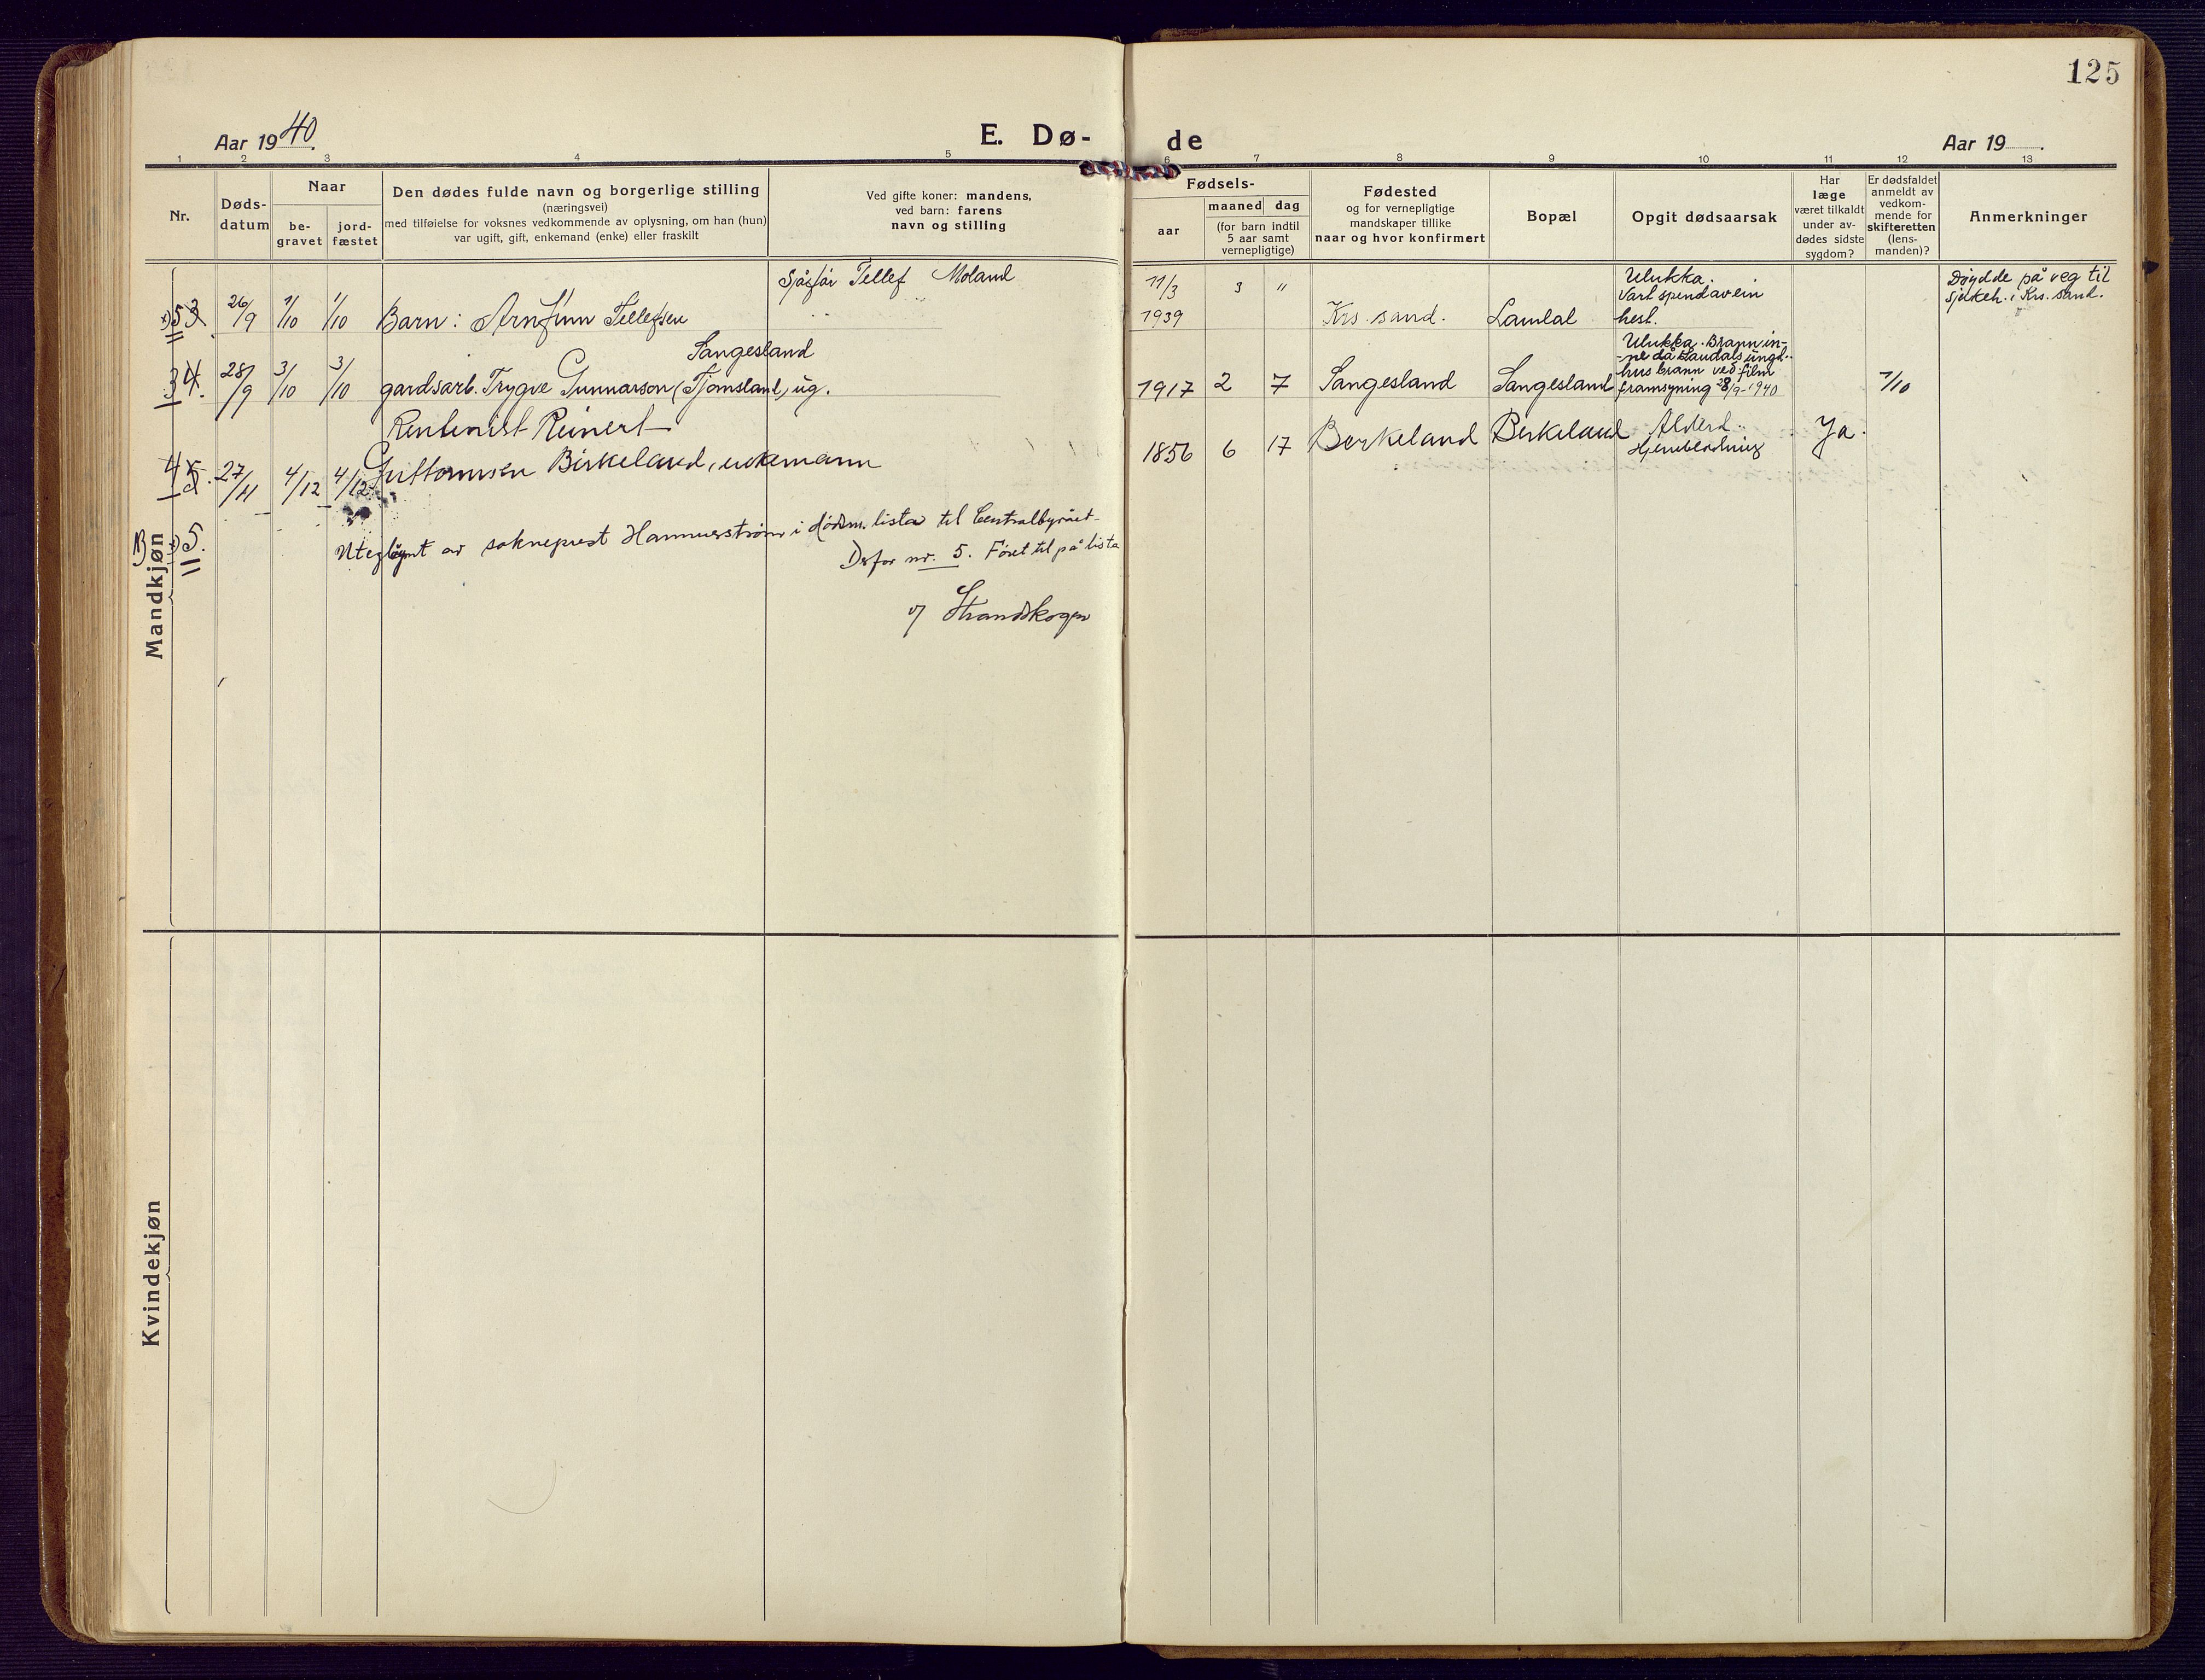 125
Aar 1940.
E. Dø-
de
Aar 19
1
2
3
4
5
6
7
8
9
10
11
12
13
Nr.
Døds-
datum
Naar
be-
gravet
jord-
fæstet
Den dødes fulde navn og borgerlige stilling
(næringsvei)
med tilføielse for voksnes vedkommende av oplysning, om han (hun)
var ugift, gift, enkemand (enke) eller fraskilt
Ved gifte koner: mandens,
ved barn: farens
navn og stilling
Fødsels-
aar
maaned
dag
(for barn indtil
5 aar samt
vernepligtige)
Fødested
og for vernepligtige
mandskaper tillike
naar og hvor konfirmert
Bopæl
Opgit dødsaarsak
Har
læge
været tilkaldt
under av-
dødes sidste
sygdom?
Er dødsfaldet
anmeldt av
vedkom-
mende for
skifteretten
(lens-
manden)?
Anmerkninger
Mandkjøn
x) 53
26/9
1/10
1/10
Barn: Arnfinn Tellefsen
Sjåfør Tellef Moland
11/3
1939
3
"
Krs. sand.
Laudal
Ulukka.
Vart spend av ein
hest.
Døydde på veg til
sjukeh. i Krs. sand.
34.
28/9
3/10
3/10
Sangesland
gardsarb. Trygve Gunnarson (Tjomsland), ug.
1917
2
7
Sangesland
Sangesland
Ulukka. Brann in-
-ne då Laudals ungd.-
hus brann ved film
framsyning 28/9-1940
1/10
4
27/11
4/12
4/12
Rentenist Reinert
Guttormsen Birkeland, enkemann
1856
6
17
Berkeland
Birkeland
Alderd.
Hjernebløtning
Ja.
x) 5.
Utegløymt av sokneprest Hammerstrøm i dødsm. lista til Centralbyrået
Derfor nr. 5. Føret til på lista
Strandskogen
Kvindekjøn